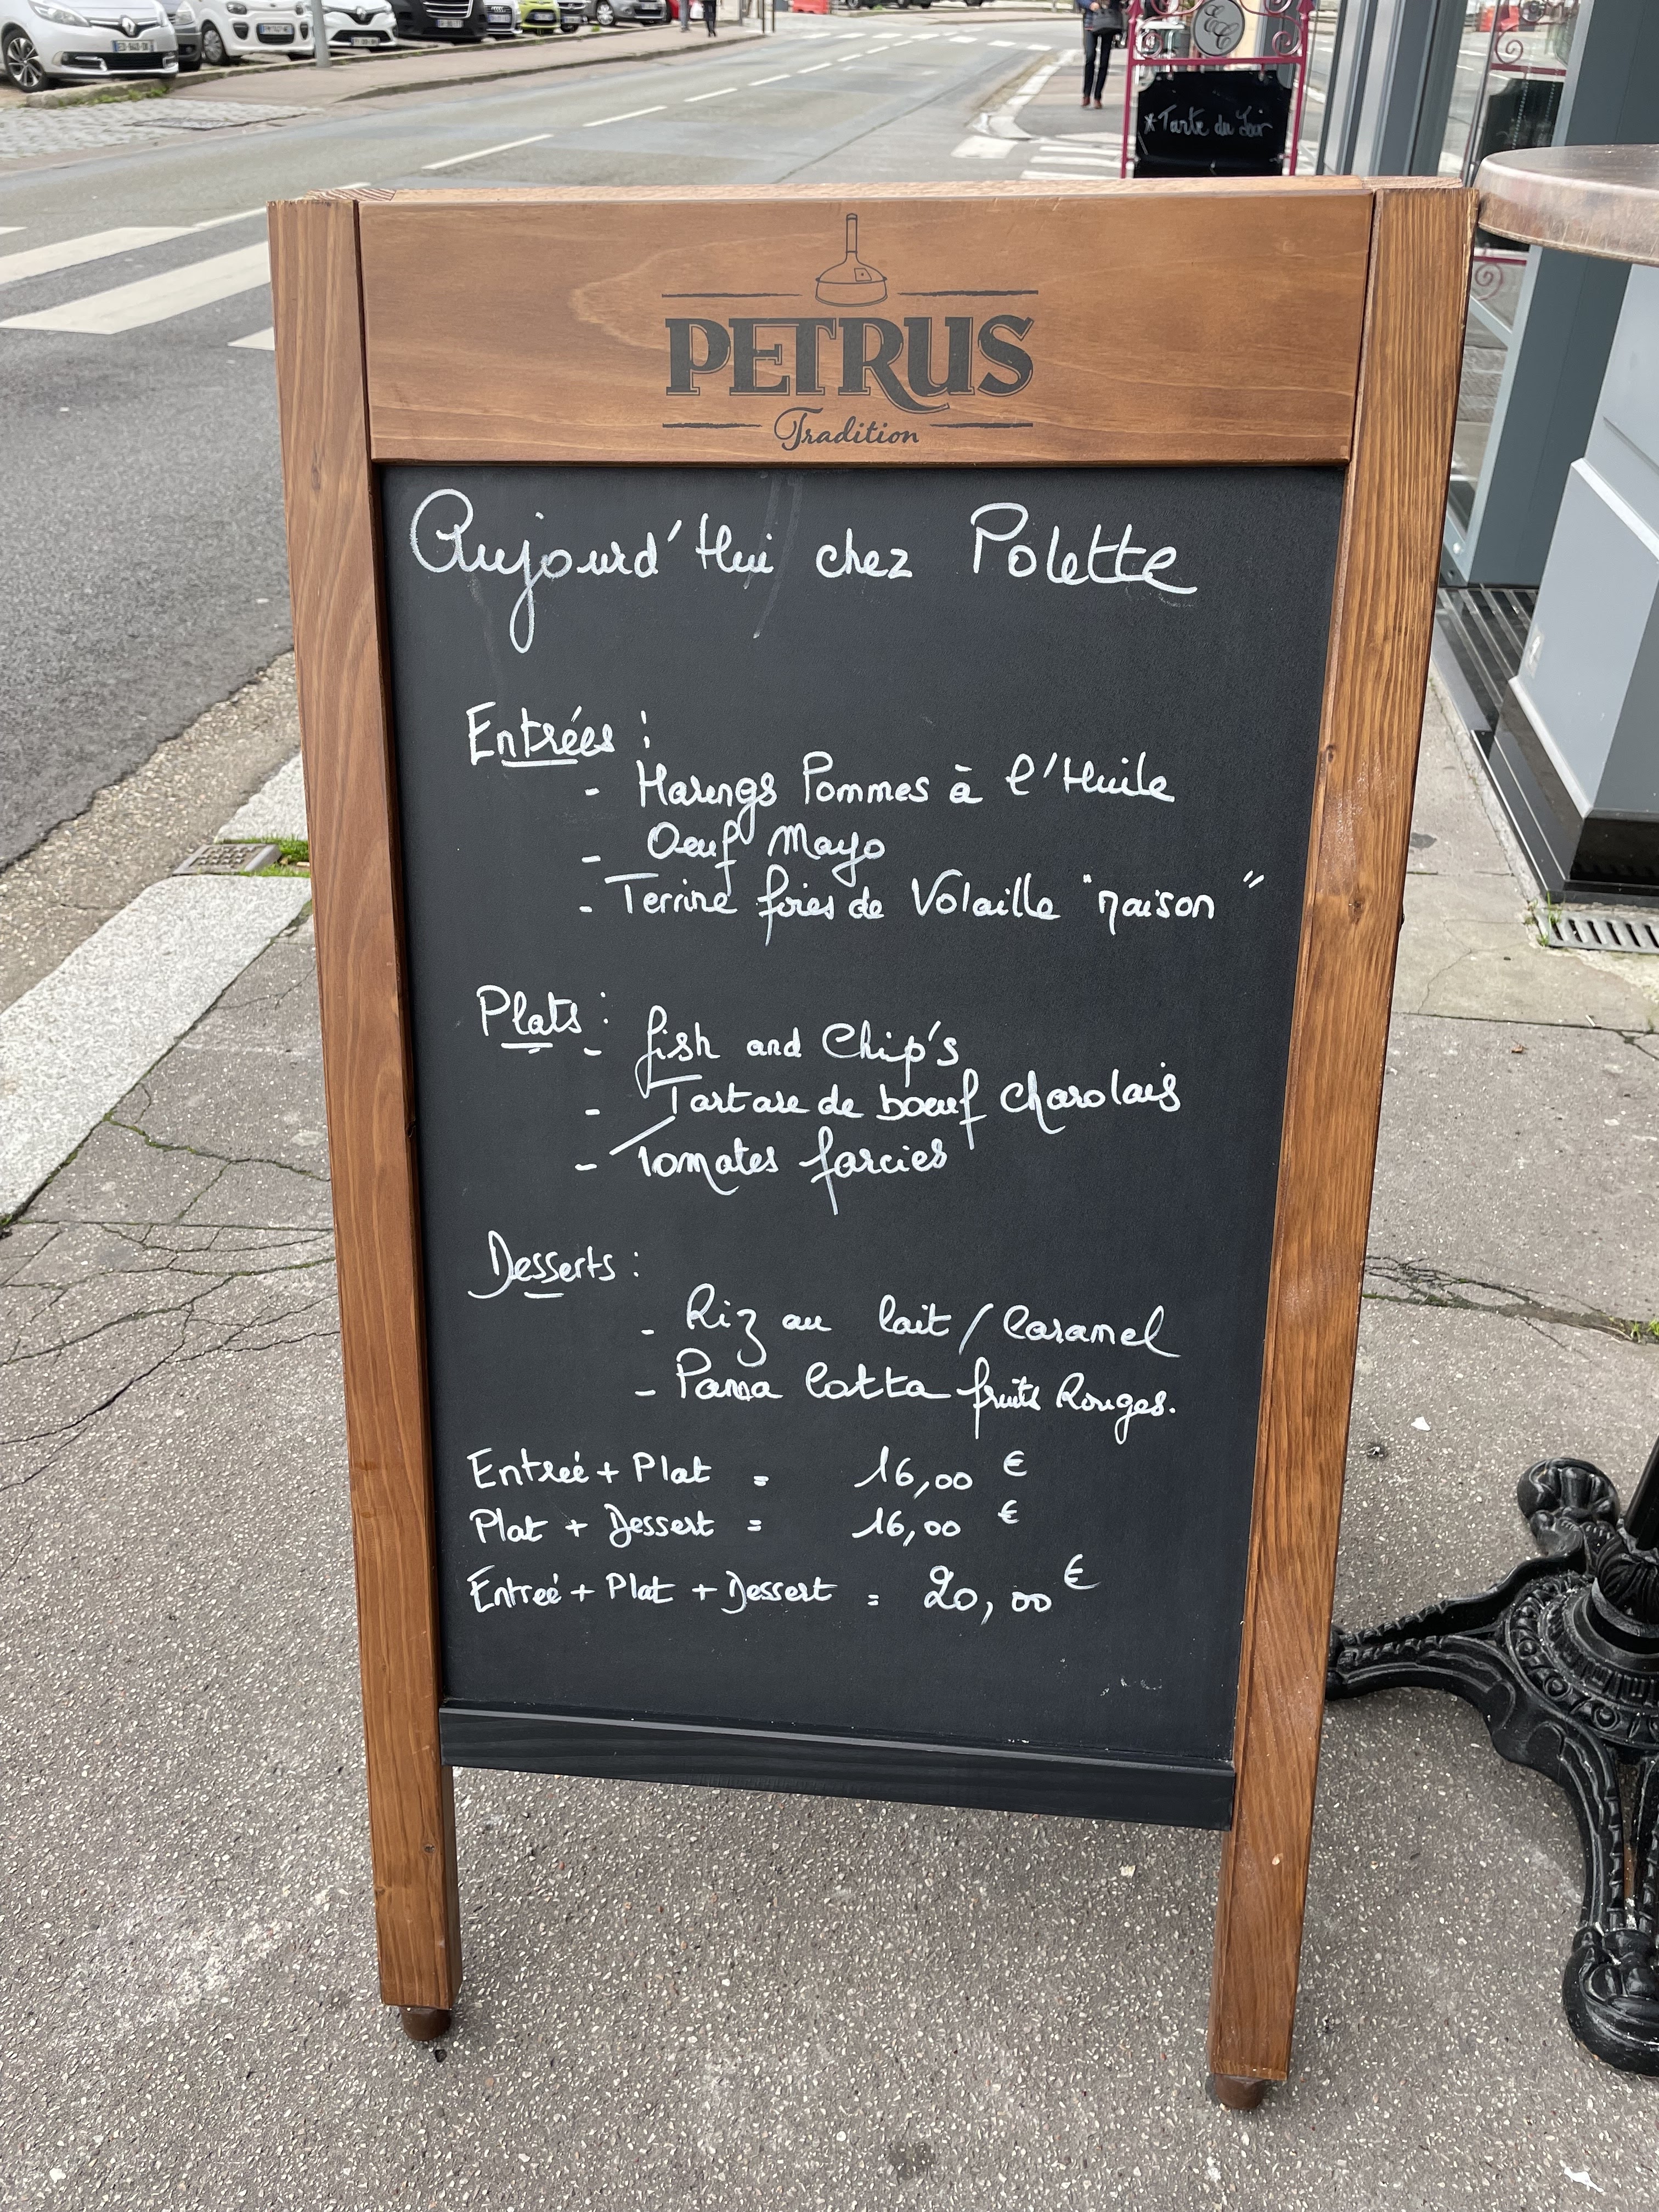 *Tarte du Jour
PETRUS
Tradition
Aujourd'Hui chez Polette
Entrées :
- Harengs Pommes à l'Huile
- Oeuf Mayo
- Terrine foies de Volaille "maison"
Plats :
- fish and Chip's
- Tartare de boeuf Charolais
- Tomates farcies
Desserts :
- Riz au lait / Caramel
- Pana Cotta fruits Rouges.
Entreé + Plat = 16,00 €
Plat + Dessert = 16,00 €
Entreé + Plat + Dessert = 20,00 €